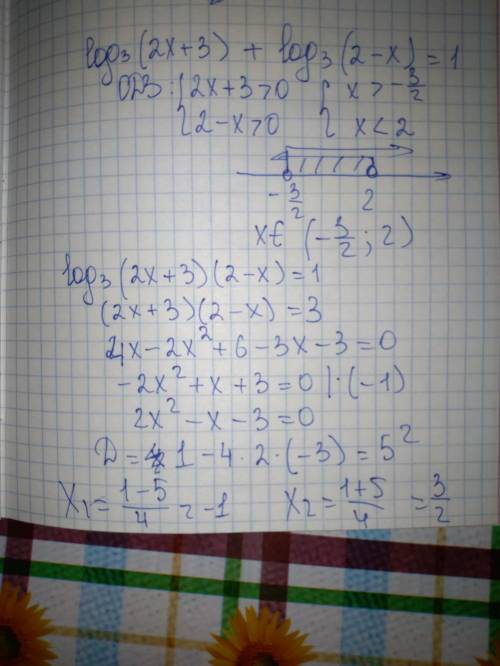 log₃(2x+3) + log₃(2-x) = 1
ОДЗ: { 2x+3>0 { x > -3/2
{ 2-x>0 { x < 2
-3/2 2
x∈ (-3/2; 2)
log₃(2x+3)(2-x)=1
(2x+3)(2-x)=3
4x-2x²+6-3x-3=0
-2x²+x+3=0 |·(-1)
2x²-x-3=0
D = 1-4·2·(-3)=5²
x₁=(1-5)/4=-1 x₂=(1+5)/4=3/2